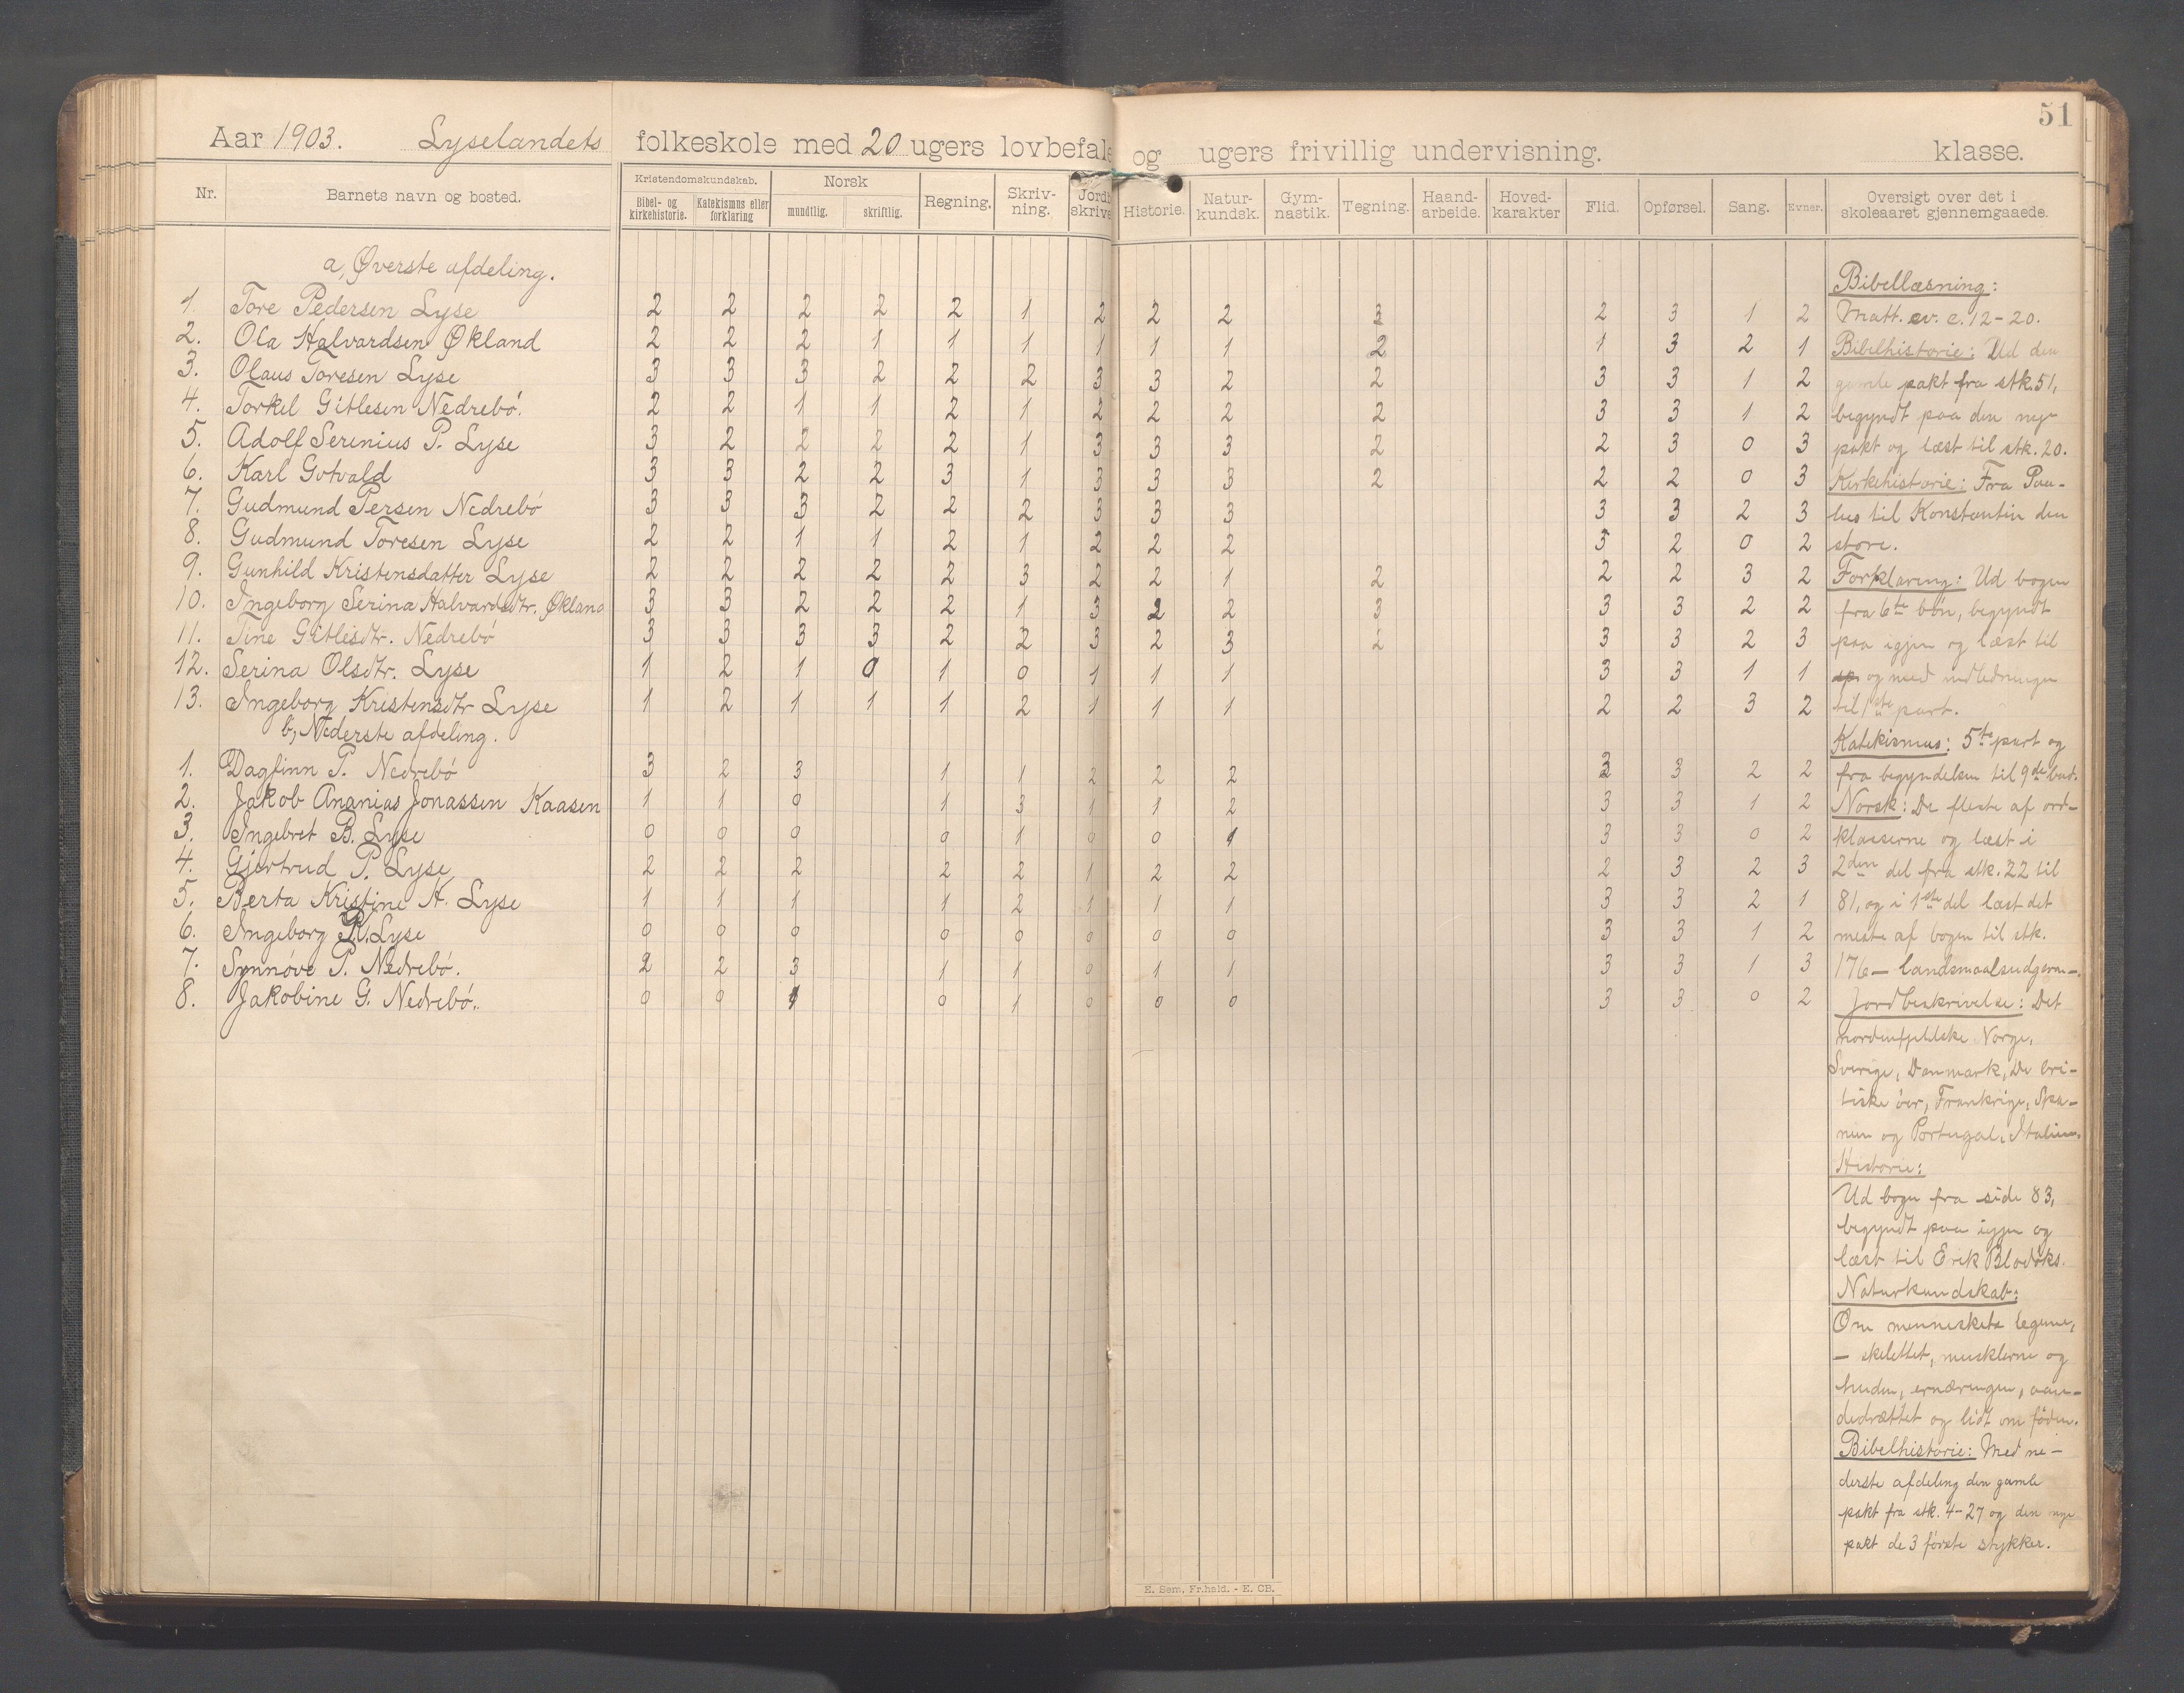 51
Aar 1903. Lyselandets folkeskole med 20 ugers lovbefale og ugers frivillig undervisning. klasse.
Nr. Barnets navn og bosted. Kristendomskundskab. Bibel- og kirkehistorie. Katekismus eller forklaring Norsk mundtlig. skriftlig. Regning. Skriv-ning. Jordb skrive Historie. Natur-kundsk. Gym-nastik. Tegning. Haand-arbeide. Hoved-karakter Flid. Opførsel. Sang. Evner. Oversigt over det i skoleaaret gjennemgaaede.
a, Øverste afdeling.
1. Tore Pedersen Lyse 2 2 2 2 2 1 2 2 2 3 2 3 1 2
2. Ola Halvardsen Økland 2 2 2 1 1 1 1 1 1 2 1 3 2 1
3. Olaus Toresen Lyse 3 3 3 2 2 2 3 3 2 2 3 3 1 2
4. Torkel Gitlesen Nedrebö. 2 2 1 1 2 1 2 2 2 2 3 3 1 2
5. Adolf Serenius P. Lyse 3 2 2 2 2 1 3 3 3 2 2 3 0 3
6. Karl Gotvald 3 3 2 2 3 1 3 3 3 2 2 2 0 3
7. Gudmund Persen Nedrebö 3 3 3 2 2 2 3 3 3 3 3 2 3
8. Gudmund Toresen Lyse 2 2 1 1 2 1 2 2 2 3 2 0 2
9. Gunhild Kristensdatter Lyse 2 2 2 2 2 3 2 2 1 2 2 2 3 2
10. Ingeborg Serina Halvardsdtr. Økland 3 3 2 2 2 1 3 2 2 3 3 3 2 2
11. Tine Gitlesdtr. Nedrebö 3 3 3 3 2 2 3 2 3 2 3 3 2 3
12. Serina Olsdtr. Lyse 1 2 1 0 1 0 1 1 1 3 3 1 1
13. Ingeborg Kristensdtr Lyse 1 2 1 1 1 2 1 1 1 2 2 3 2
b, Nederste afdeling.
1. Dagfinn P. Nedrebö 3 2 3 1 1 2 2 2 3 3 2 2
2. Jakob Ananias Jonassen Kaasen 1 1 0 1 3 1 1 2 3 3 1 2
3. Ingebret B. Lyse 0 0 0 0 1 0 0 1 3 3 0 2
4. Gjertrud P. Lyse 2 2 2 2 2 1 2 2 2 3 2 3
5. Berta Kristine K. Lyse 1 1 1 1 2 1 1 1 3 3 2 1
6. Ingeborg Lyse 0 0 0 0 0 0 0 0 3 3 1 2
7. Synnöve P. Nedrebö. 2 2 3 1 1 0 1 1 3 3 1 3
8. Jakobine G. Nedrebö. 0 0 1 0 1 0 0 0 3 3 0 2
Bibellæsning:
Matt. ev. c. 12-20.
Bibelhistorie: Ud den
gamle pakt fra stk. 51,
begyndt paa den nye
pakt og læst til stk. 20.
Kirkehistorie: Fra Pau-
lus til Konstantin den
store.
Forklaring: Ud bogen
fra 6te bön, begyndt
paa igjen og læst til
og med indledningen
til 1ste part.
Katekismus: 5te part og
fra begyndelsen til 9de bud.
Norsk: De fleste af ord-
klasserne og læst i
2den del fra stk. 22 til
81, og i 1ste del læst det
meste af bogen til stk.
176 - landsmaalsudgaven.
Jordbeskrivelse: Det
nordenfjeldske Norge,
Sverige, Danmark, De bri-
tiske öer, Frankrige, Spa-
nien og Portugal, Italien.
Historie:
Ud bogen fra side 83,
begyndt paa igjen og
læst til Erik Blodöks.
Naturkundskab:
Om menneskets legeme,
- skelettet, musklerne og
huden, ernæringen, aan-
dedrættet og lidt om föden.
Bibelhistorie: Med ne-
derste afdeling den gamle
pakt fra stk. 4-27 og den nye
pakt de 3 förste stykker.
E. Sem, Fr.hald. - E. CB.